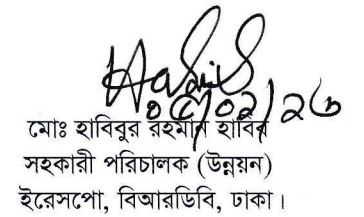 Habib
০৫/০২/২৬
মোঃ হাবিবুর রহমান হাবিব
সহকারী পরিচালক (উন্নয়ন)
ইরেসপো, বিআরডিবি, ঢাকা।